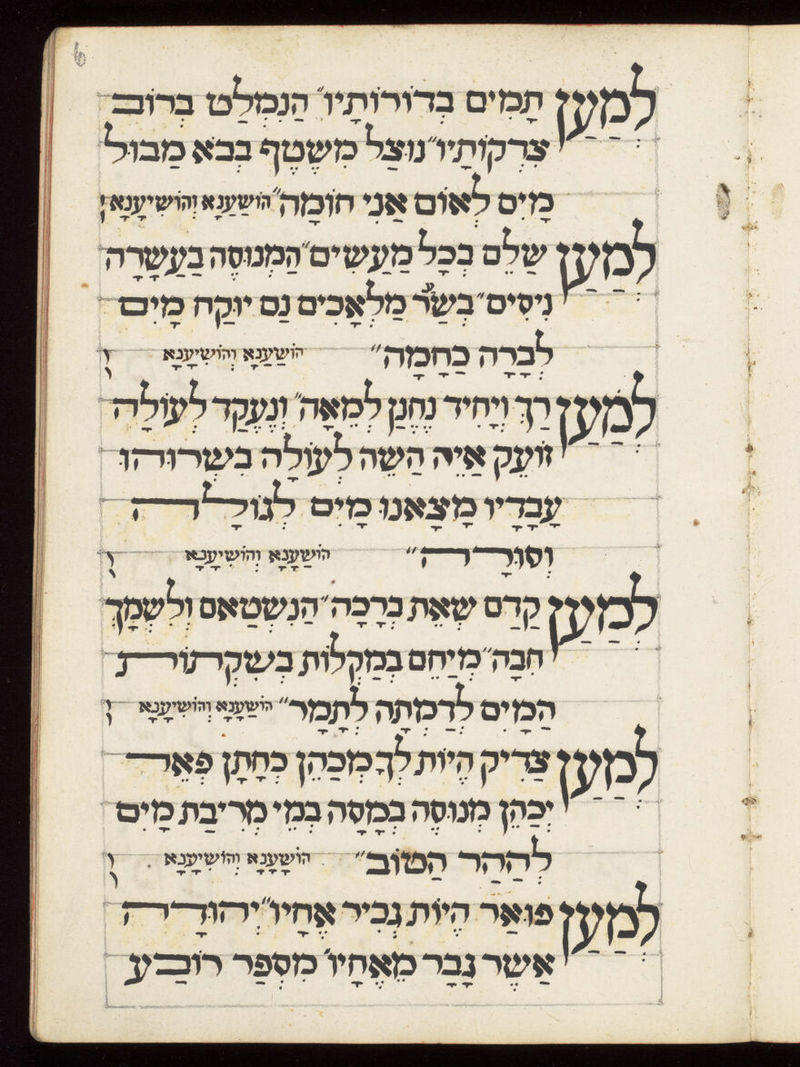 6
לְמַעַן תָמִים בְדוֹרוֹתָיו" הַנִמְלַט בְרוֹב
צִדְקוֹתָיו" נוּצַל מִשֶטֶף בְבֹא מַבוּל
מָיִם לְאוֹם אֲנִי חוֹמָה" הוֹשַעֲנָא וְהוֹשִיעָנָא
לְמַעַן שַלֵם בְכָל מַעֲשִים" הַמְנוּסֶה בַעֲשָרָה
נִיסִים" בְשָר מַלְאָכִים נַם יוּקַח מָיִם
לְבָרָה כַחַמָה" הוֹשַעֲנָא וְהוֹשִיעָנָא
לְמַעַן רַךְ וְיָחִיד נֶחֱנַן לְמֵאָה" וְנֶעֱקַד לְעוֹלָה
זוֹעֵק אַיֵה הַשֶה לְעוֹלָה בִשְרוּהוּ
עֲבָדָיו מָצָאנוּ מָיִם לְגוֹלָה
וְסוּרָה" הוֹשַעֲנָא וְהוֹשִיעָנָא
לְמַעַן קִדַם שְאֵת בְרָכָה" הַנִשְטַאם וּלְשִמְךָ
חִכָה" מְיַחֵם בְמַקְלוֹת בְשִקֲתוֹת
הַמַיִם לְדָמְתָה לְתָמָר" הוֹשַעֲנָא וְהוֹשִיעָנָא
לְמַעַן צַדִיק הֱיוֹת לְךָ מְכַהֵן כְחָתָן פְאֵר
יְכַהֵן מְנוּסֶה בְמַסָה בְמֵי מְרִיבַת מָיִם
לְהָהַר הַטוֹב" הוֹשַעֲנָא וְהוֹשִיעָנָא
לְמַעַן פוּאַר הֱיוֹת גְבִיר אֶחָיו" יְהוּדָה
אֲשֶר גָבַר מֵאֶחָיו" מִסְפַר רוֹבַע